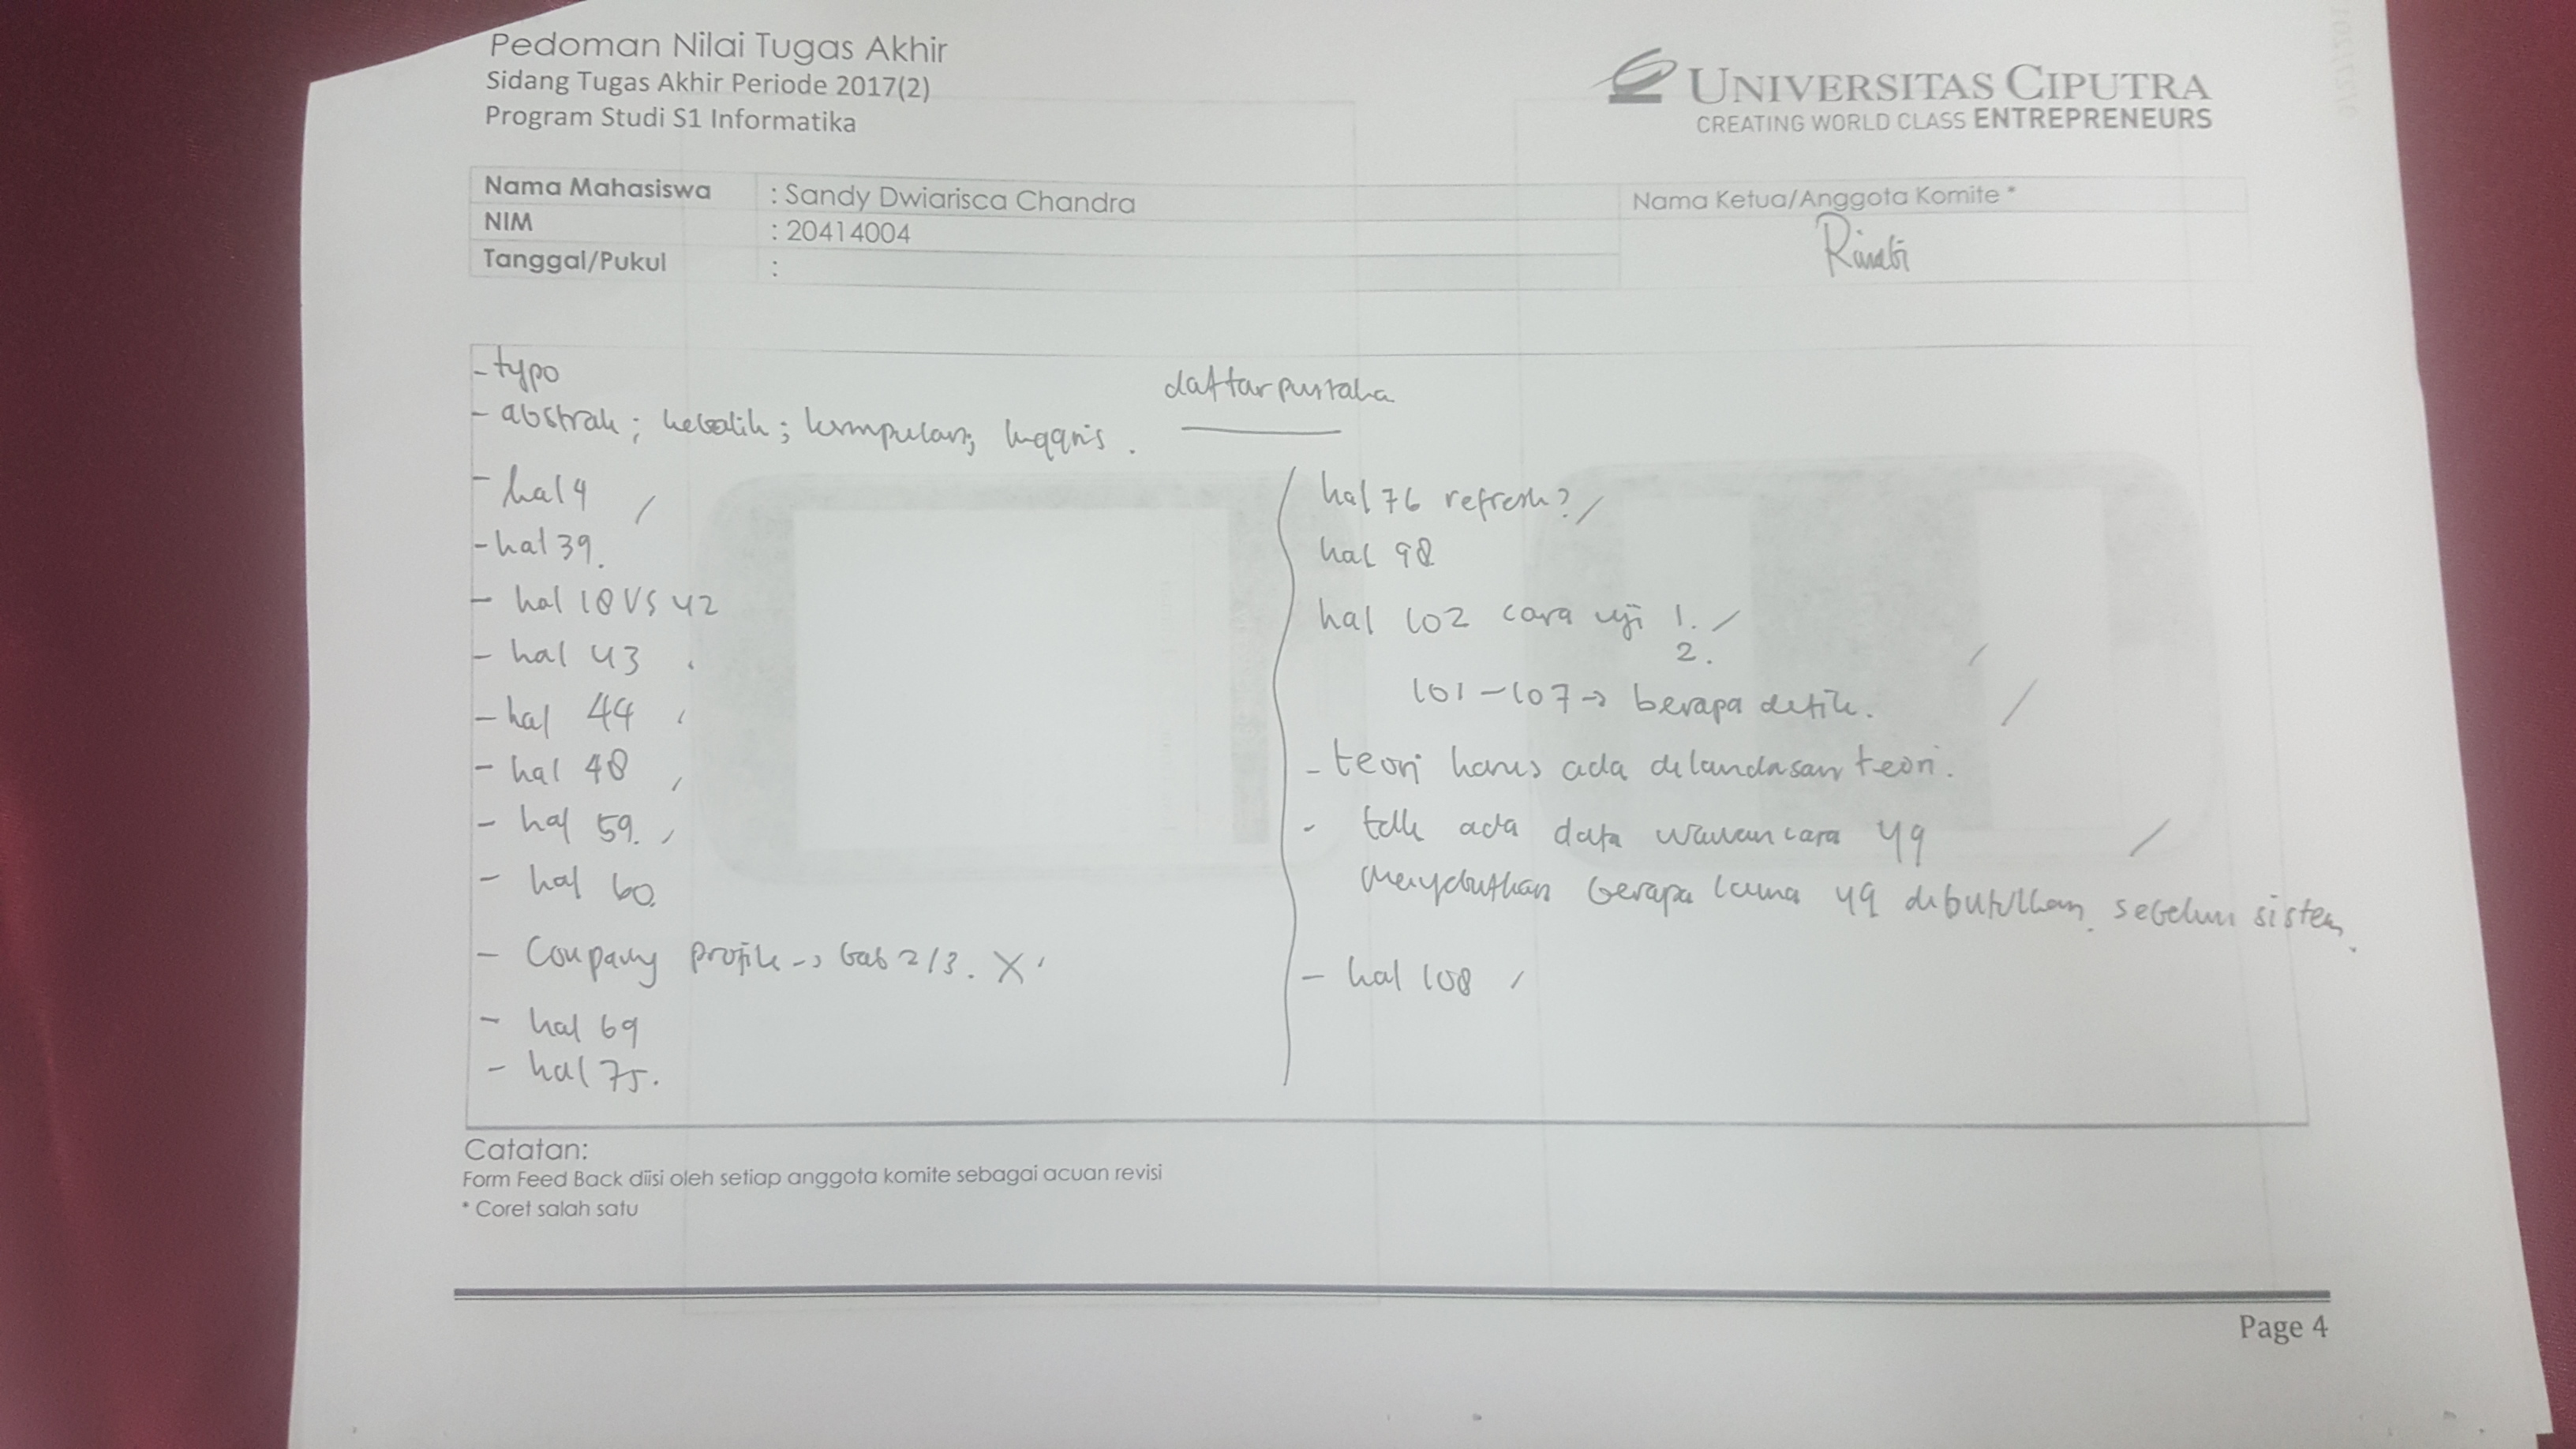 Pedoman Nilai Tugas Akhir
Sidang Tugas Akhir Periode 2017(2)
Program Studi S1 Informatika
UNIVERSITAS CIPUTRA
CREATING WORLD CLASS ENTREPRENEURS
Nama Mahasiswa : Sandy Dwiarisca Chandra
NIM : 20414004
Tanggal/Pukul :
Nama Ketua/Anggota Komite *
- typo
- abstrak; kebalik; kumpulan; Inggris.
- hal 4
- hal 39.
- hal 18 VS 42
- hal 43
- hal 44
- hal 48
- hal 59.
- hal 60.
- Company profile -> bab 2/3. X
- hal 69
- hal 75.
daftar pustaka
hal 76 refresh?
hal 98
hal 102 cara uji 1.
2.
101 - 107 -> berapa detik.
- teori harus ada dilandasan teori.
- tdk ada data wawancara yg
menyebutkan berapa lama yg dibutuhkan sebelum sistem.
- hal 108
Catatan:
Form Feed Back diisi oleh setiap anggota komite sebagai acuan revisi
* Coret salah satu
Page 4